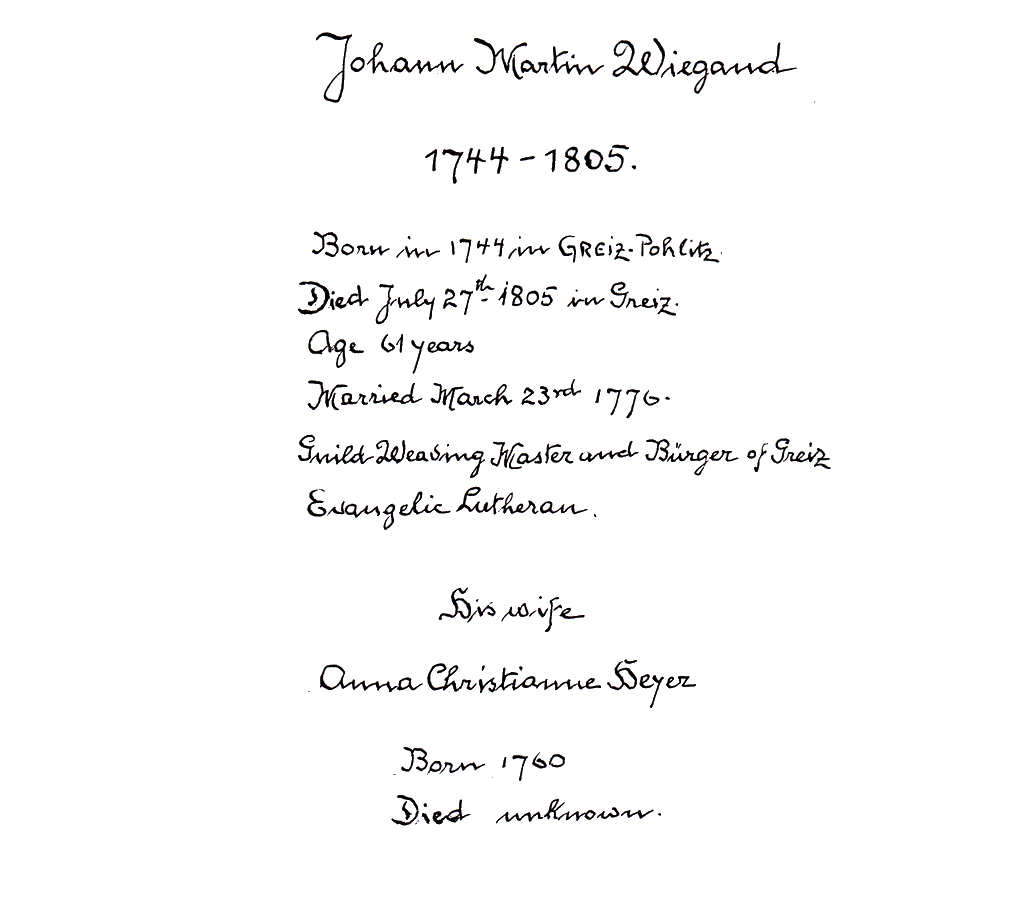 Johann Martin Wiegand
1744 - 1805.
Born in 1744 in GREIZ-Pohlitz.
Died July 27th 1805 in Greiz.
Age 61 years
Married March 23rd 1776.
Guild Weaving Master and Bürger of Greiz
Evangelic Lutheran.
His wife
Anna Christianne Heyer
Born 1760
Died unknown.